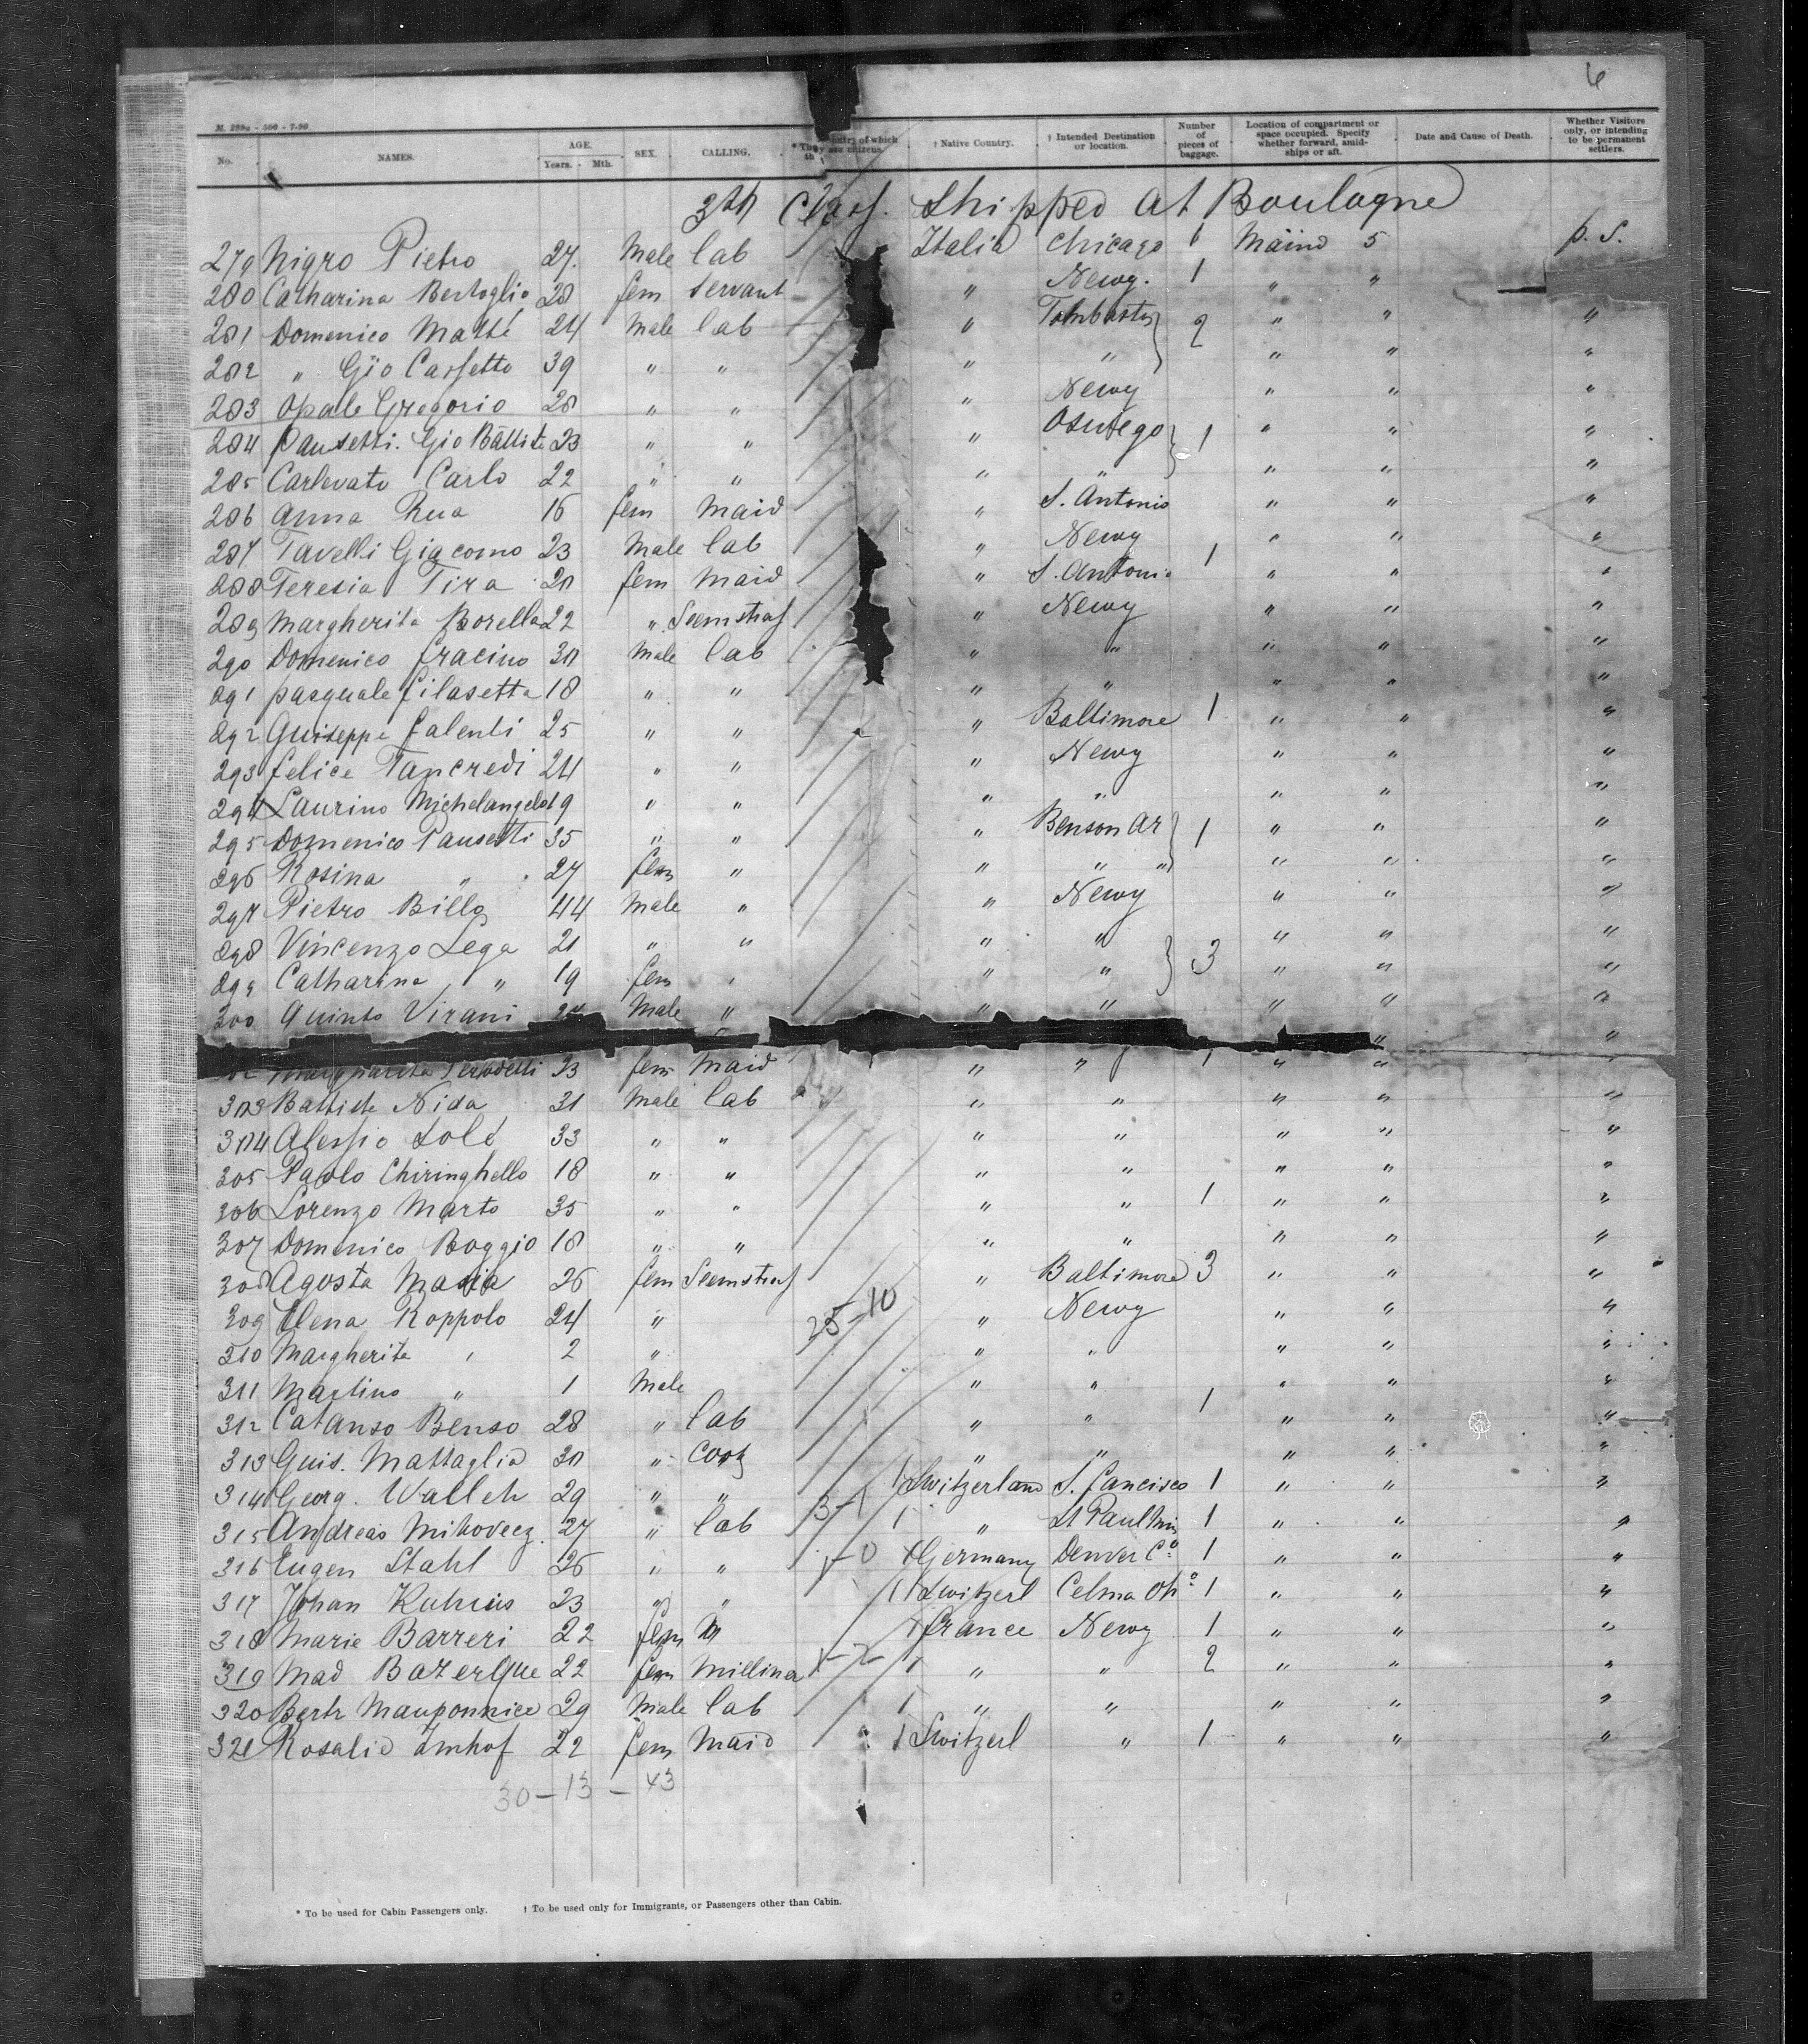 6
M. 299a - 500 - 7-90
No. NAMES. AGE. Years. Mth. SEX. CALLING. † Native Country. † Intended Destination or location. Number of pieces of baggage. Location of compartment or space occupied. Specify whether forward, amidships or aft. Date and Cause of Death. Whether Visitors only, or intending to be permanent settlers.
3th Class. Shipped at Boulogne
279 Nigro Pietro 27. Male lab Italia Chicago 1 Maind 5 p. S.
280 Catharina Bertoglio 28 fem servant " Newy. 1 " "
281 Domenico Matté 24 Male lab " 2 " " "
282 " Gio Cassetto 39 " " " " " " "
283 Opale Gregorio 28 " " " Newy " " "
284 Pausetti. Gio Battiste 23 " " " Oswego 1 " " "
285 Carlevato Carlo 22 " " " " " " "
286 Anna Rua 16 fem Maid " S. Antonio " " "
287 Tavelli Giacomo 23 Male lab " Newy 1 " " "
288 Teresia Tira 20 fem Maid " S. Antonio " " "
289 Margherita Borella 22 " Seemstrass " Newy " " "
290 Domenico fracino 30 Male lab " " " " "
291 pasquale filasetta 18 " " " " " " "
292 Guiseppe falenti 25 " " " Baltimore 1 " " "
293 felice Tancredi 24 " " " Newy " " "
294 Laurino Michelangelo 19 " " " " " " "
295 Domenico Pausetti 35 " " " Benson Ar 1 " " "
296 Rosina " 27 fem " " " " " " "
297 Pietro Billo 44 Male " " Newy " " "
298 Vincenzo Lega 21 " " " " 3 " " "
299 Catharina " 19 fem " " " " " "
300 Quinto Virani Male " " " " " "
23 fem Maid " " 1 " " "
303 Battiste Nida 31 Male lab " " " " "
304 Alessio Solé 33 " " " " " " "
305 Paolo Chiringhello 18 " " " " " " "
306 Lorenzo Marto 35 " " " " 1 " " "
307 Domenico Boggio 18 " " " " " " "
308 Agosta Maria 26 fem Seemstrass " Baltimore 3 " " "
309 Elena Roppolo 24 " 25-10 " Newy " " "
310 Margherita " 2 " " " " " "
311 Martino " 1 Male " " " " "
312 Catanso Benso 28 " lab " " 1 " " "
313 Guis. Mattaglia 30 " Cook " " " " "
314 Georg. Walleh 29 " " 3-1 1 Switzerland S. fancisco 1 " " "
315 Andreas Mihovecz. 27 " lab 1 " St Paul Min 1 " " "
316 Eugen Stahl 26 " " 1-0 Germany Denver Co 1 " " "
317 Johan Kuhnis 23 " " 1 Switzerl Celma Oho 1 " " "
318 Marie Barreri 22 fem " 1 france Newy 1 " " "
319 Mad Bazerque 22 fem Milliner 1-2 1 " " 2 " " "
320 Bertr Mauponnice 29 Male lab 1 " " " " "
321 Rosalid Imhof 22 fem Maid 1 Switzerl " 1 " " "
30 - 13 - 43
* To be used for Cabin Passengers only. † To be used only for Immigrants, or Passengers other than Cabin.